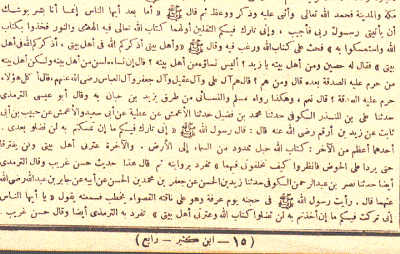 مكة والمدينة فحمد الله تعالى وأثنى عليه وذكر ووعظ ثم قال ﷺ « أما بعد أيها الناس إنما أنا بشر يوشك
أن يأتيني رسول ربي فأجيب ، وإني تارك فيكم الثقلين أولهما كتاب الله تعالى فيه الهدى والنور فخذوا بكتاب
الله واستمسكوا به » فحث على كتاب الله ورغب فيه وقال ﷺ « وأهل بيتي أذكركم الله في أهل بيتي ، أذكركم الله في أهل
بيتي » فقال له حصين ومن أهل بيته يا زيد ؟ أليس نساؤه من أهل بيته ؟ قال إن نساءه لسن من أهل بيته ولكن أهل بيته
من حرم عليه الصدقة بعده قال ومن هم ؟ قال هم آل علي وآل عقيل وآل جعفر وآل العباس رضي الله عنهم ، قال أكل هؤلاء
حرم عليه الصدقة ؟ قال نعم ، وهكذا رواه مسلم والنسائي من طرق يزيد بن حيان به وقال أبو عيسى الترمذي
حدثنا علي بن المنذر الكوفي حدثنا محمد بن فضيل حدثنا الأعمش عن عطية عن أبي سعيد والأعمش عن حبيب بن أبي
ثابت عن زيد بن أرقم رضي الله عنه قال : قال رسول الله ﷺ « إني تارك فيكم ما إن تمسكتم به لن تضلوا بعدي .
أحدهما أعظم من الآخر : كتاب الله حبل ممدود من السماء إلى الأرض ، والآخرة عترتي أهل بيتي ولن يفترقا
حتى يردا علي الحوض فانظروا كيف تخلفوني فيهما » تفرد بروايته ثم قال هذا حديث حسن غريب وقال الترمذي
أيضا حدثنا نصر بن عبد الرحمن الكوفي حدثنا زيد بن الحسن عن جعفر بن محمد بن الحسن عن أبيه عن جابر بن عبد الله رضي الله
عنهما قال . رأيت رسول الله ﷺ في حجته يوم عرفة وهو على ناقته القصواء يخطب فسمعته يقول « يا أيها الناس
إني تركت فيكم ما إن أخذتم به لن تضلوا كتاب الله وعترتي أهل بيتي » تفرد به الترمذي أيضا وقال حسن غريب
( ١٥ - ابن كثير - رابع )